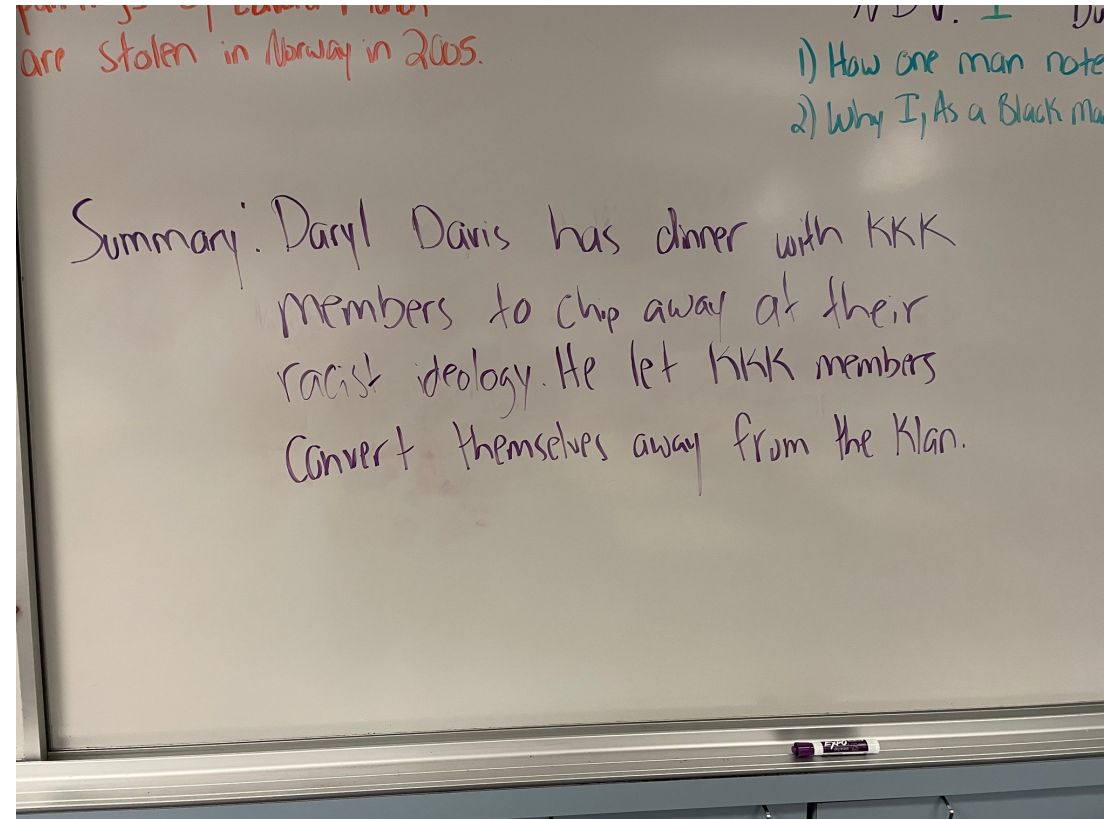 are stolen in Norway in 2005.
1) How one man note
2) Why I, As a Black Ma
Summary: Daryl Davis has dinner with KKK
members to chip away at their
racist ideology. He let KKK members
Convert themselves away from the Klan.
EXPO